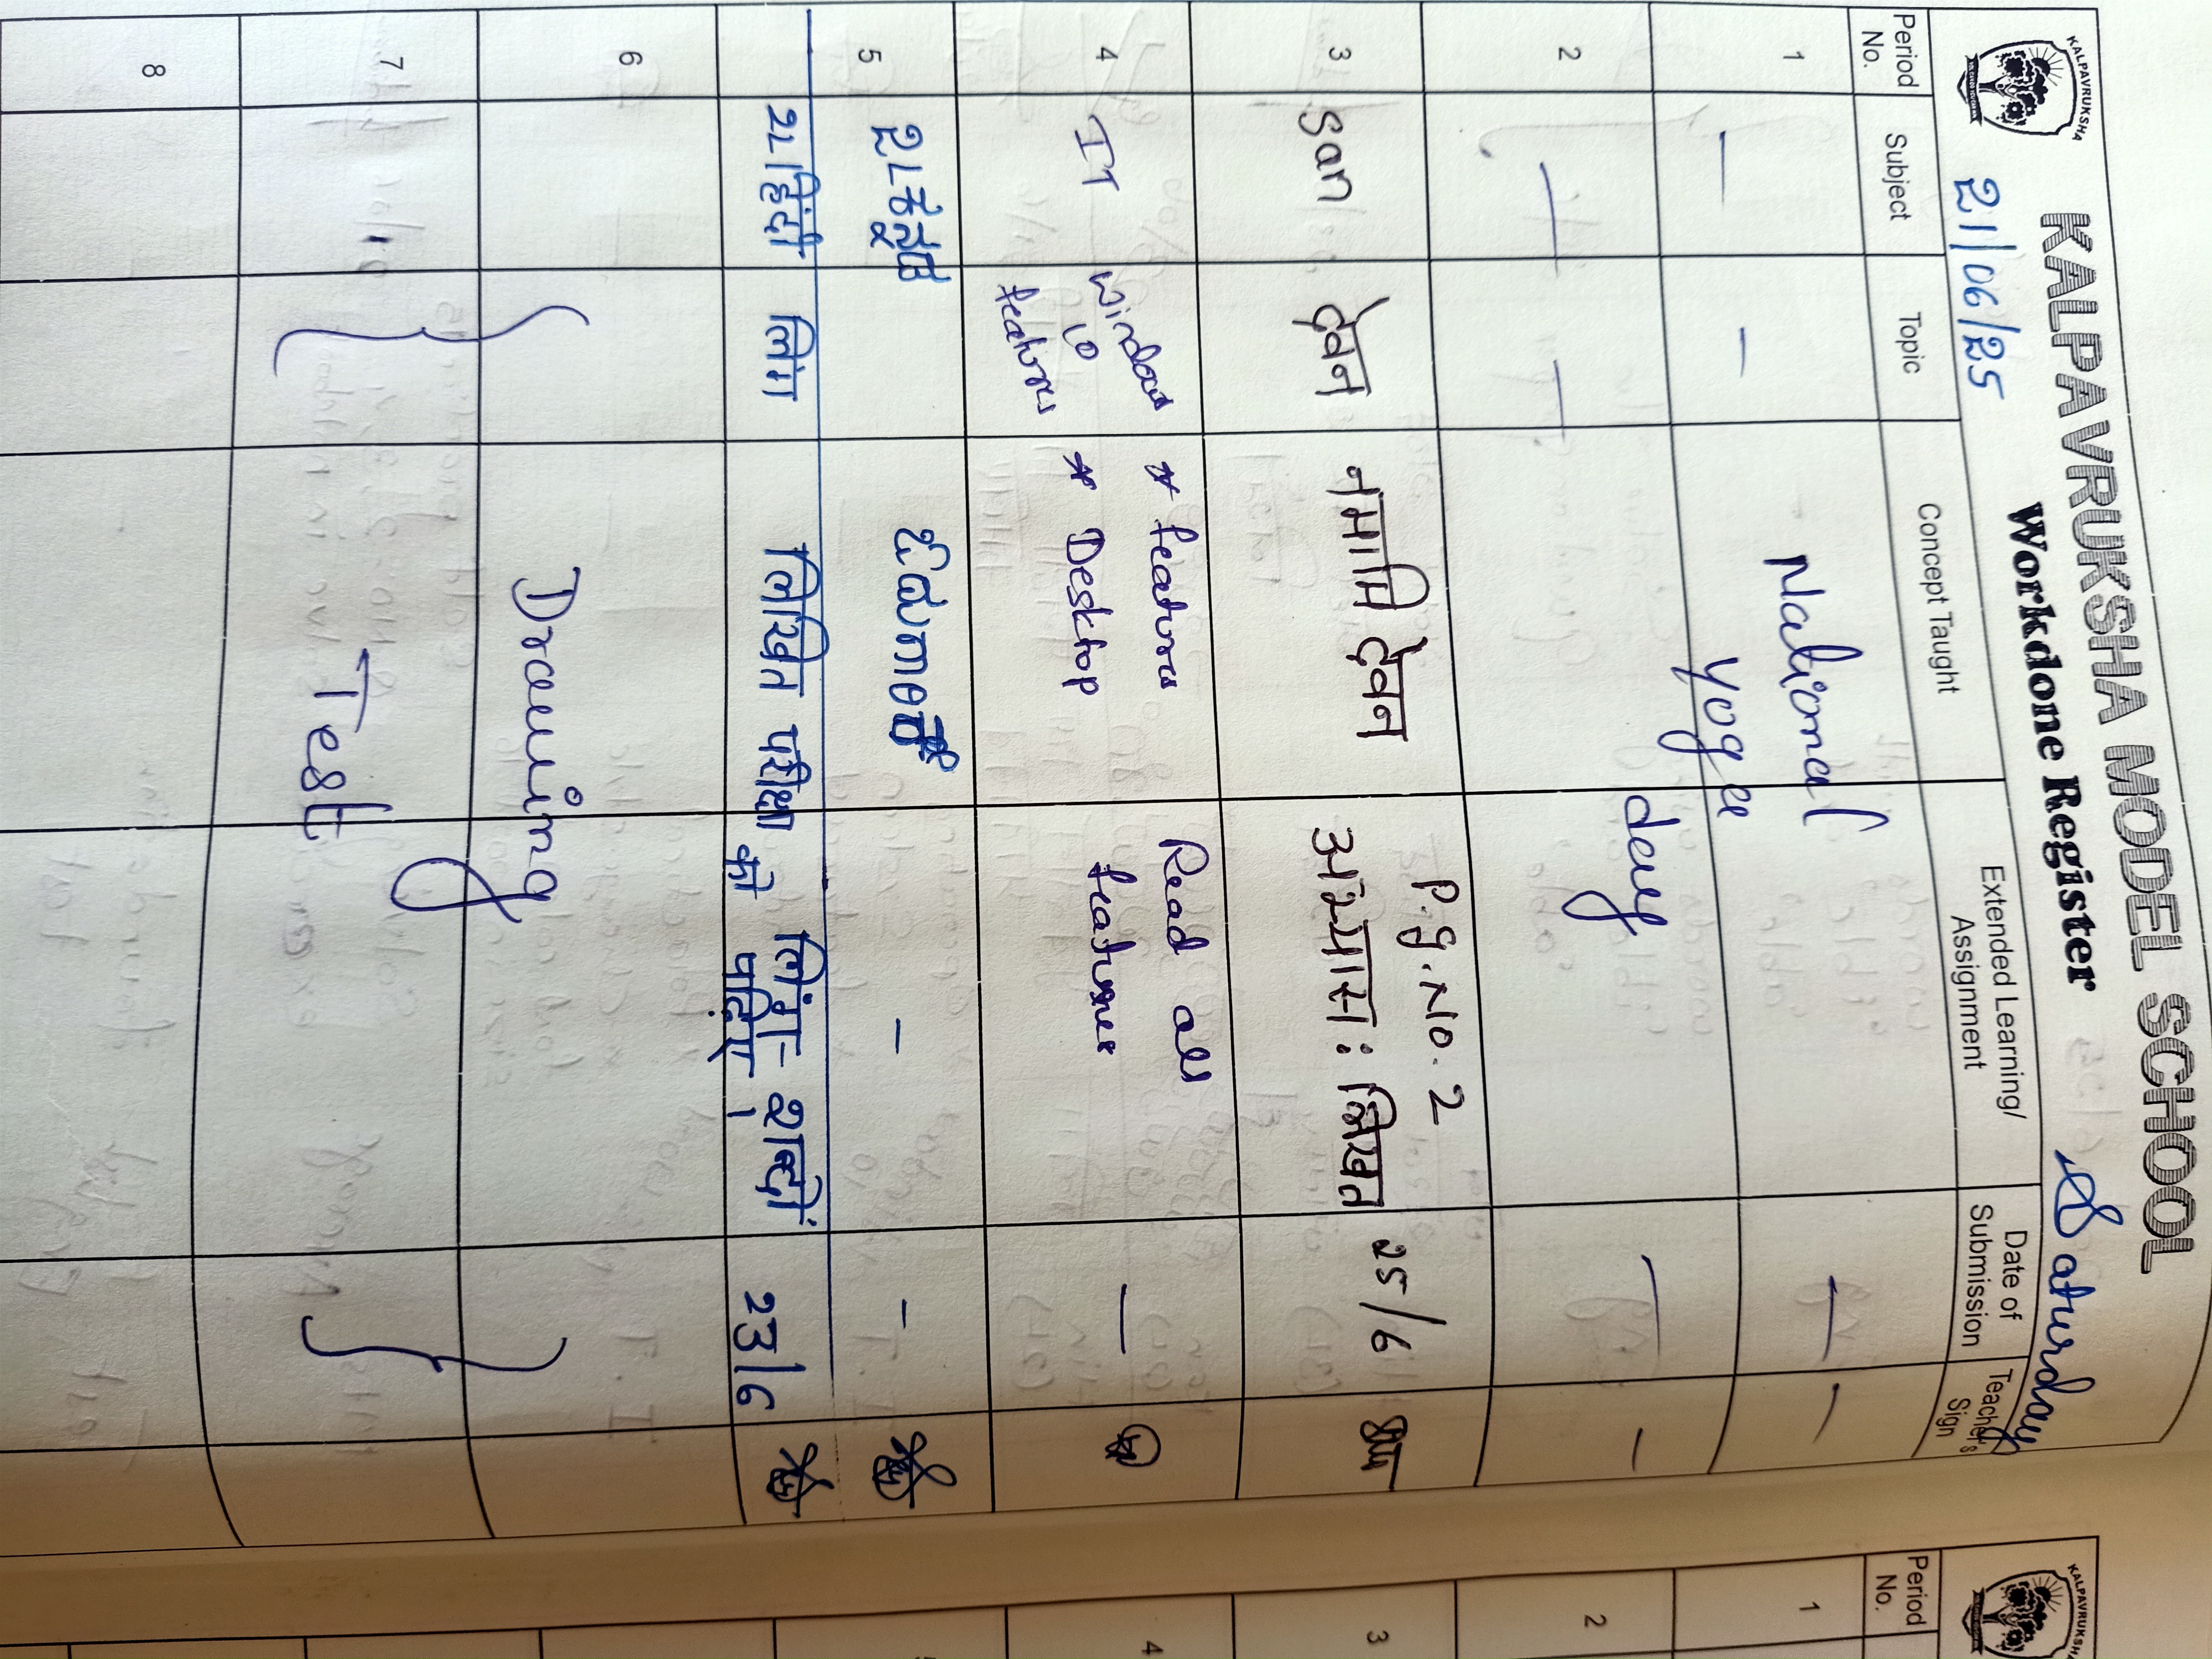 KALPAVRUKSHA
KALPAVRUKSHA MODEL SCHOOL
Workdone Register
21/06/25
Saturday
Period No. Subject Topic Concept Taught Extended Learning/ Assignment Date of Submission Teacher's Sign
1 — — National — —
Yoga
day
2 — — — —
P.g.No. 2
3 San देवन नमामि देवन अभ्यास: लिखत 25/6
4 IT Windows 10 features * features Read all —
* Desktop features
5 2L ಕನ್ನಡ — —
2L हिंदी लिंग लिखित परीक्षा लिंग- शब्दों 23/6
को पढ़िए।
6 Drawing
7 Test
8
KALPAVRUKSHA
Period No.
1
2
3
4